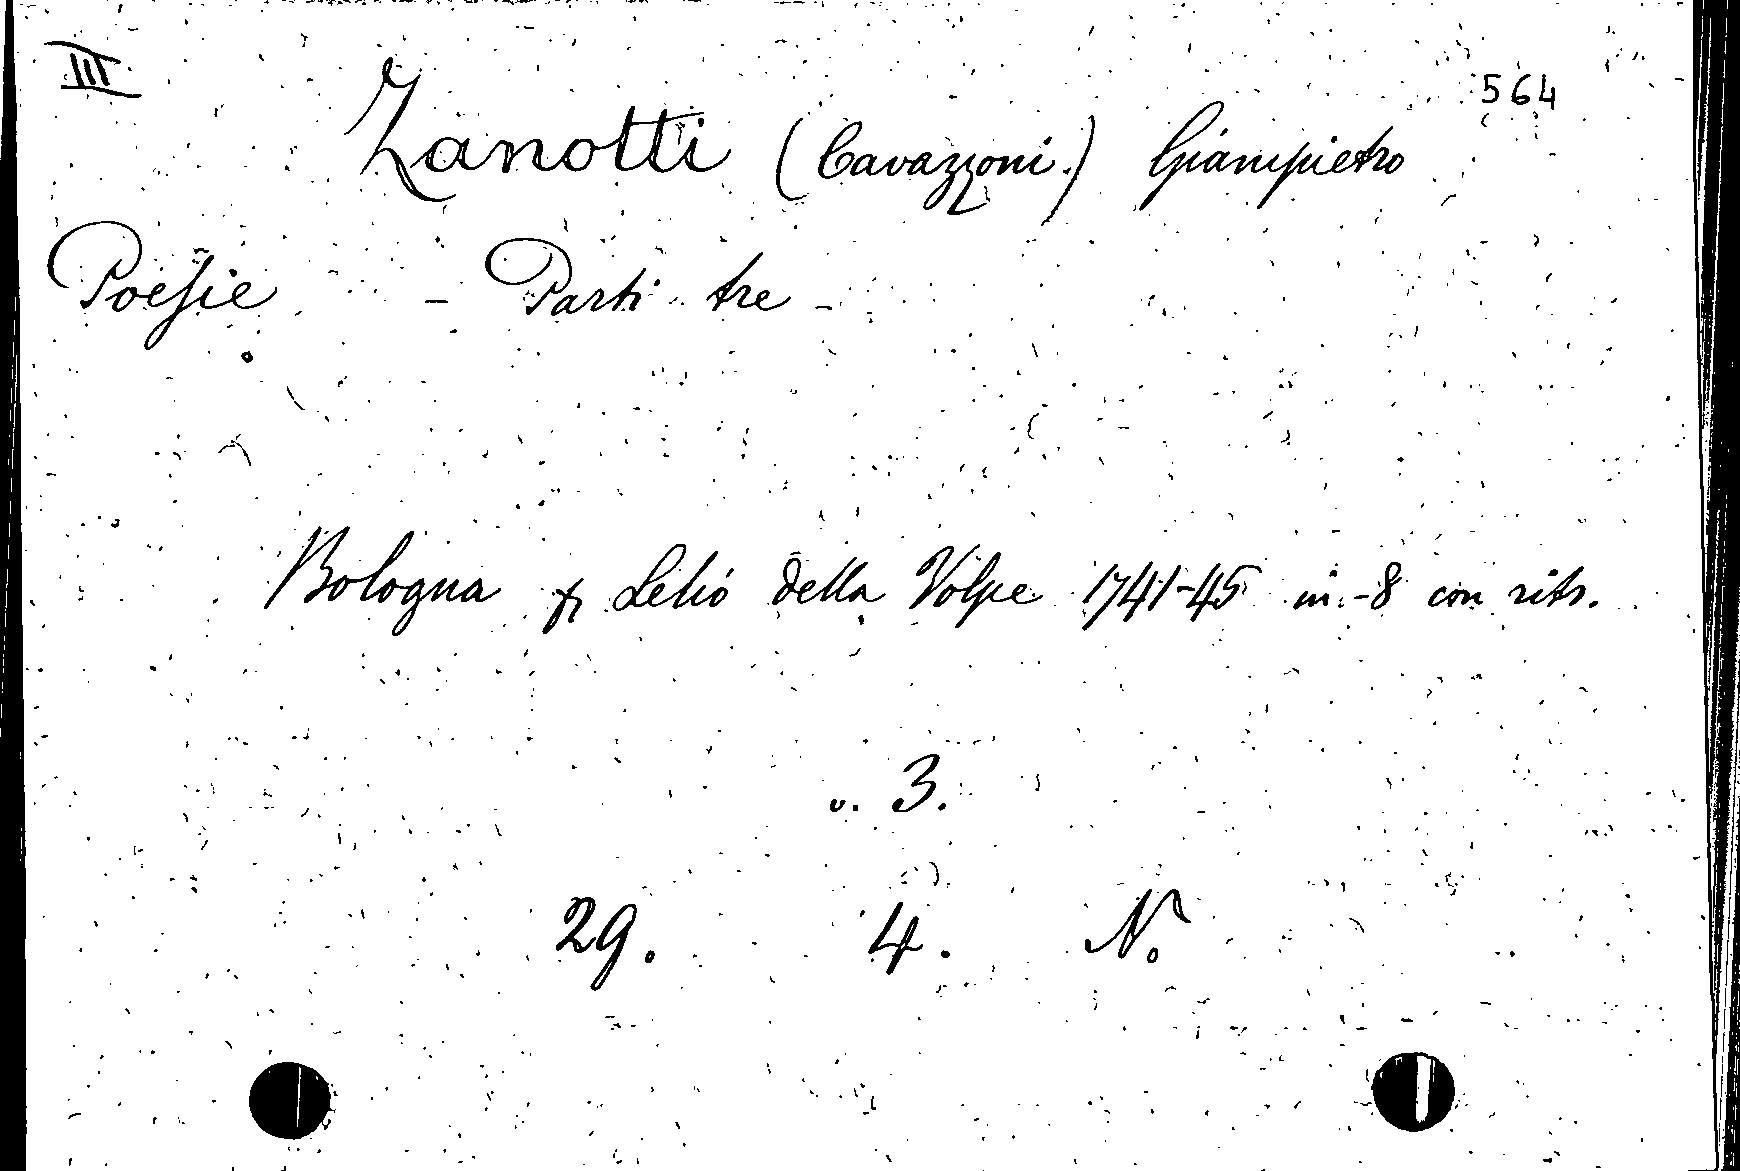 III
564
Zanotti (Cavazzoni) Giampietro
Poesie - Parti tre -
Bologna p. Lelio della Volpe 1741-45 in-8 con ritr.
v. 3.
29. 4. N.